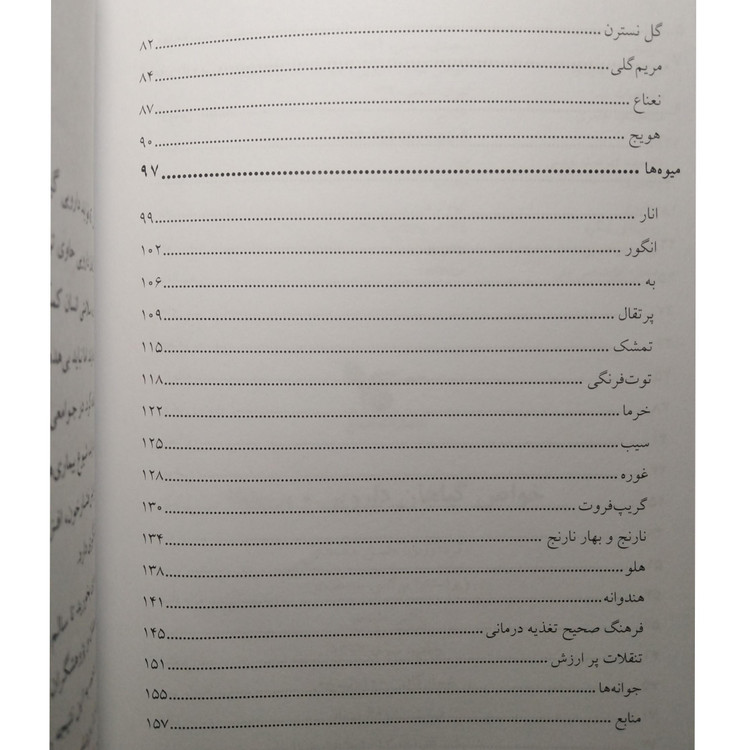 گل نسترن ........ ۸۲
مریم‌گلی ........ ۸۴
نعناع ........ ۸۷
هویج ........ ۹۰
میوه‌ها ........ ۹۷
انار ........ ۹۹
انگور ........ ۱۰۲
به ........ ۱۰۶
پرتقال ........ ۱۰۹
تمشک ........ ۱۱۵
توت‌فرنگی ........ ۱۱۸
خرما ........ ۱۲۲
سیب ........ ۱۲۵
غوره ........ ۱۲۸
گریپ‌فروت ........ ۱۳۰
نارنج و بهار نارنج ........ ۱۳۴
هلو ........ ۱۳۸
هندوانه ........ ۱۴۱
فرهنگ صحیح تغذیه درمانی ........ ۱۴۵
تنقلات پر ارزش ........ ۱۵۱
جوانه‌ها ........ ۱۵۵
منابع ........ ۱۵۷